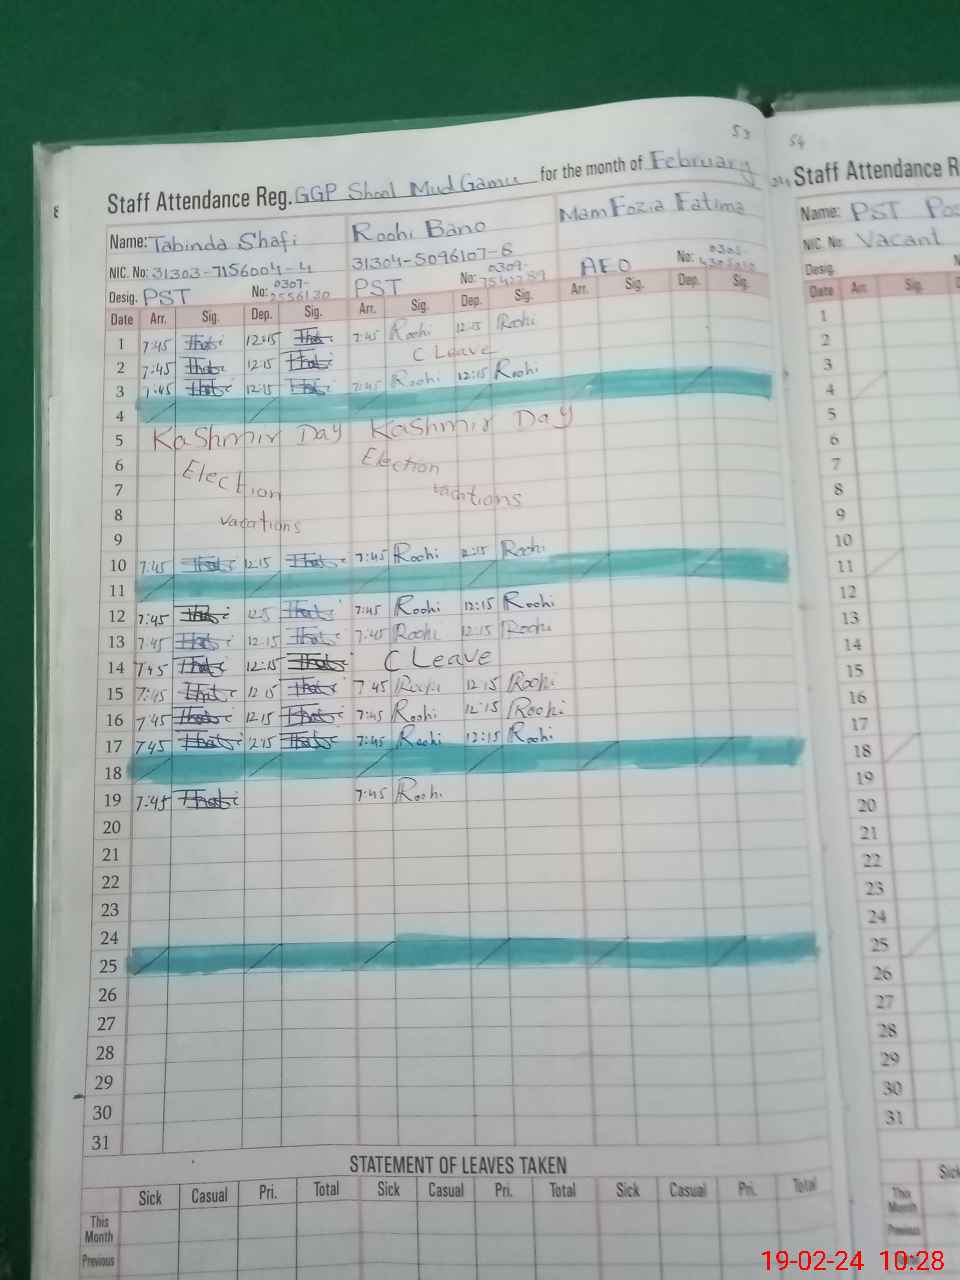 53
Staff Attendance Reg. GGP Shool Mud Gamu for the month of February
Name: Tabinda Shafi Roohi Bano Mam Fozia Fatima
NIC. No: 31303-7156004-4 31304-5096107-8
Desig. PST No: 0307- PST No: 0309- AEO No:
Date Arr. Sig. Dep. Sig. Arr. Sig. Dep. Sig. Arr. Sig. Dep. Sig.
1 7:45 12:15 7:45 Roohi 12:15 Roohi
2 7:45 12:15 C Leave
3 7:45 12:15 7:45 Roohi 12:15 Roohi
4
5 Kashmir Day Kashmir Day
6 Election Election
7 vacations
8 vacations
9
10 7:45 12:15 7:45 Roohi 12:15 Roohi
11
12 7:45 7:45 Roohi 12:15 Roohi
13 7:45 12:15 7:45 Roohi 12:15 Roohi
14 7:45 12:15 C Leave
15 7:45 12:15 7:45 Roohi 12:15 Roohi
16 7:45 12:15 7:45 Roohi 12:15 Roohi
17 7:45 7:45 Roohi 12:15 Roohi
18
19 7:45 7:45 Roohi
20
21
22
23
24
25
26
27
28
29
30
31
STATEMENT OF LEAVES TAKEN
Sick Casual Pri. Total Sick Casual Pri. Total Sick Casual Pri. Total
This Month
Previous
54
Staff Attendance R
Name: PST
NIC. No: Vacant
Desig.
Date Arr. Sig.
1
2
3
4
5
6
7
8
9
10
11
12
13
14
15
16
17
18
19
20
21
22
23
24
25
26
27
28
29
30
31
Sick
This Month
Previous
19-02-24 10:28